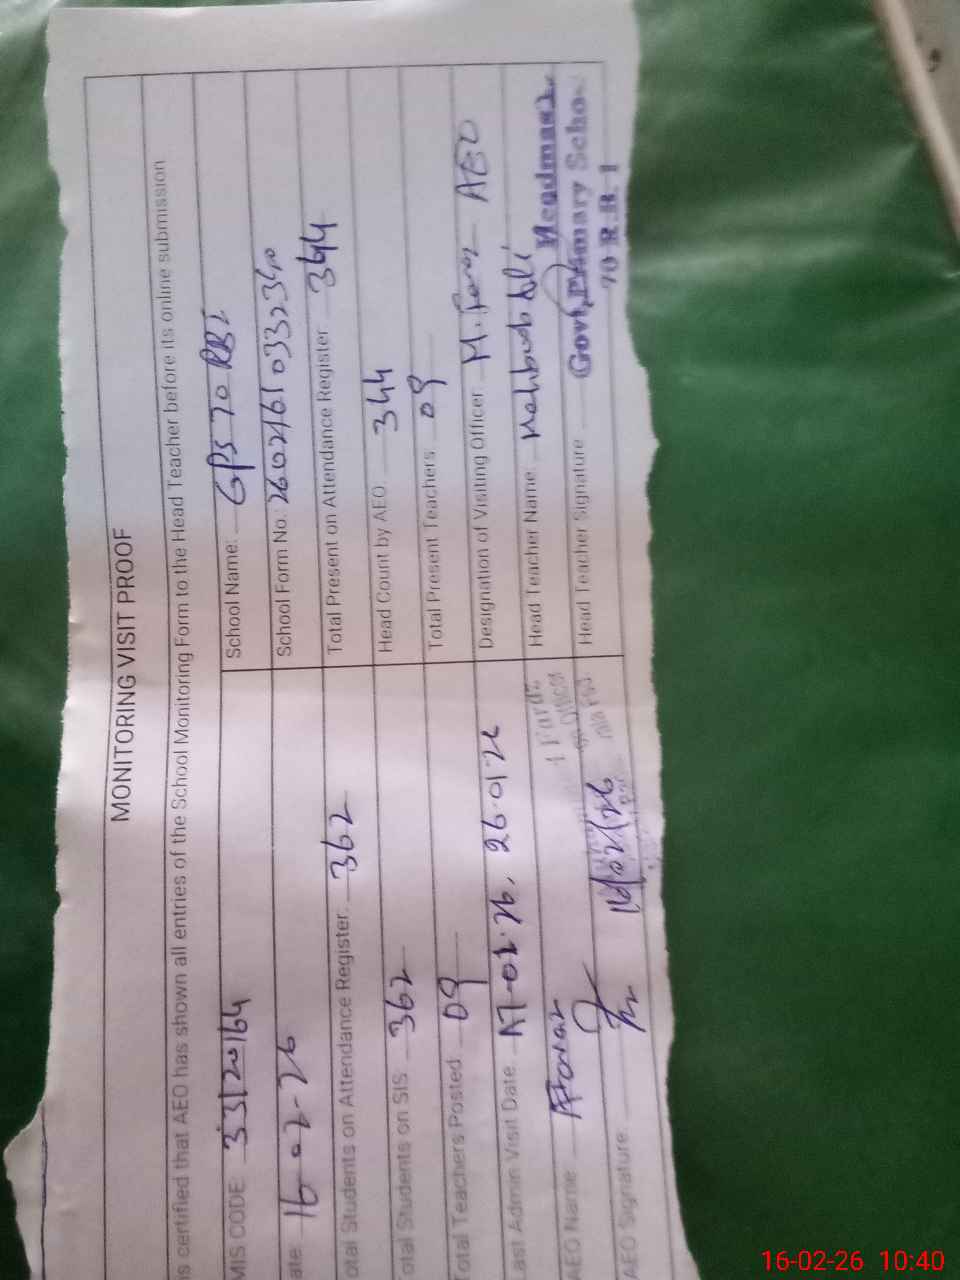 MONITORING VISIT PROOF
is certified that AEO has shown all entries of the School Monitoring Form to the Head Teacher before its online submission
MIS CODE: 33120164 School Name: GPS 70 RB I
ate: 16-02-26 School Form No.:
otal Students on Attendance Register: 362 Total Present on Attendance Register: 344
otal Students on SIS: 362 Head Count by AEO: 344
otal Teachers Posted: 09 Total Present Teachers: 09
ast Admin Visit Date: Designation of Visiting Officer: AEO
AEO Name: Head Teacher Name: Mahboob Ali
AEO Signature: 16/02/26 Head Teacher Signature
Headmas
Govt, Primary Schoo
70 R.B. I
16-02-26 10:40